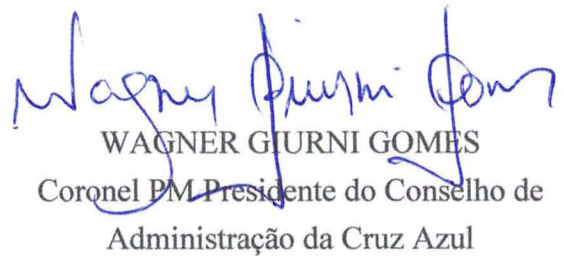 Wagner Giurni Gomes
WAGNER GIURNI GOMES
Coronel PM Presidente do Conselho de
Administração da Cruz Azul